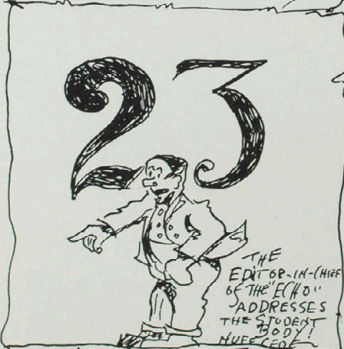 23
THE
EDITOR-IN-CHIEF
OF THE "ECHO"
ADDRESSES
THE STUDENT
BODY!
NUFF CED!